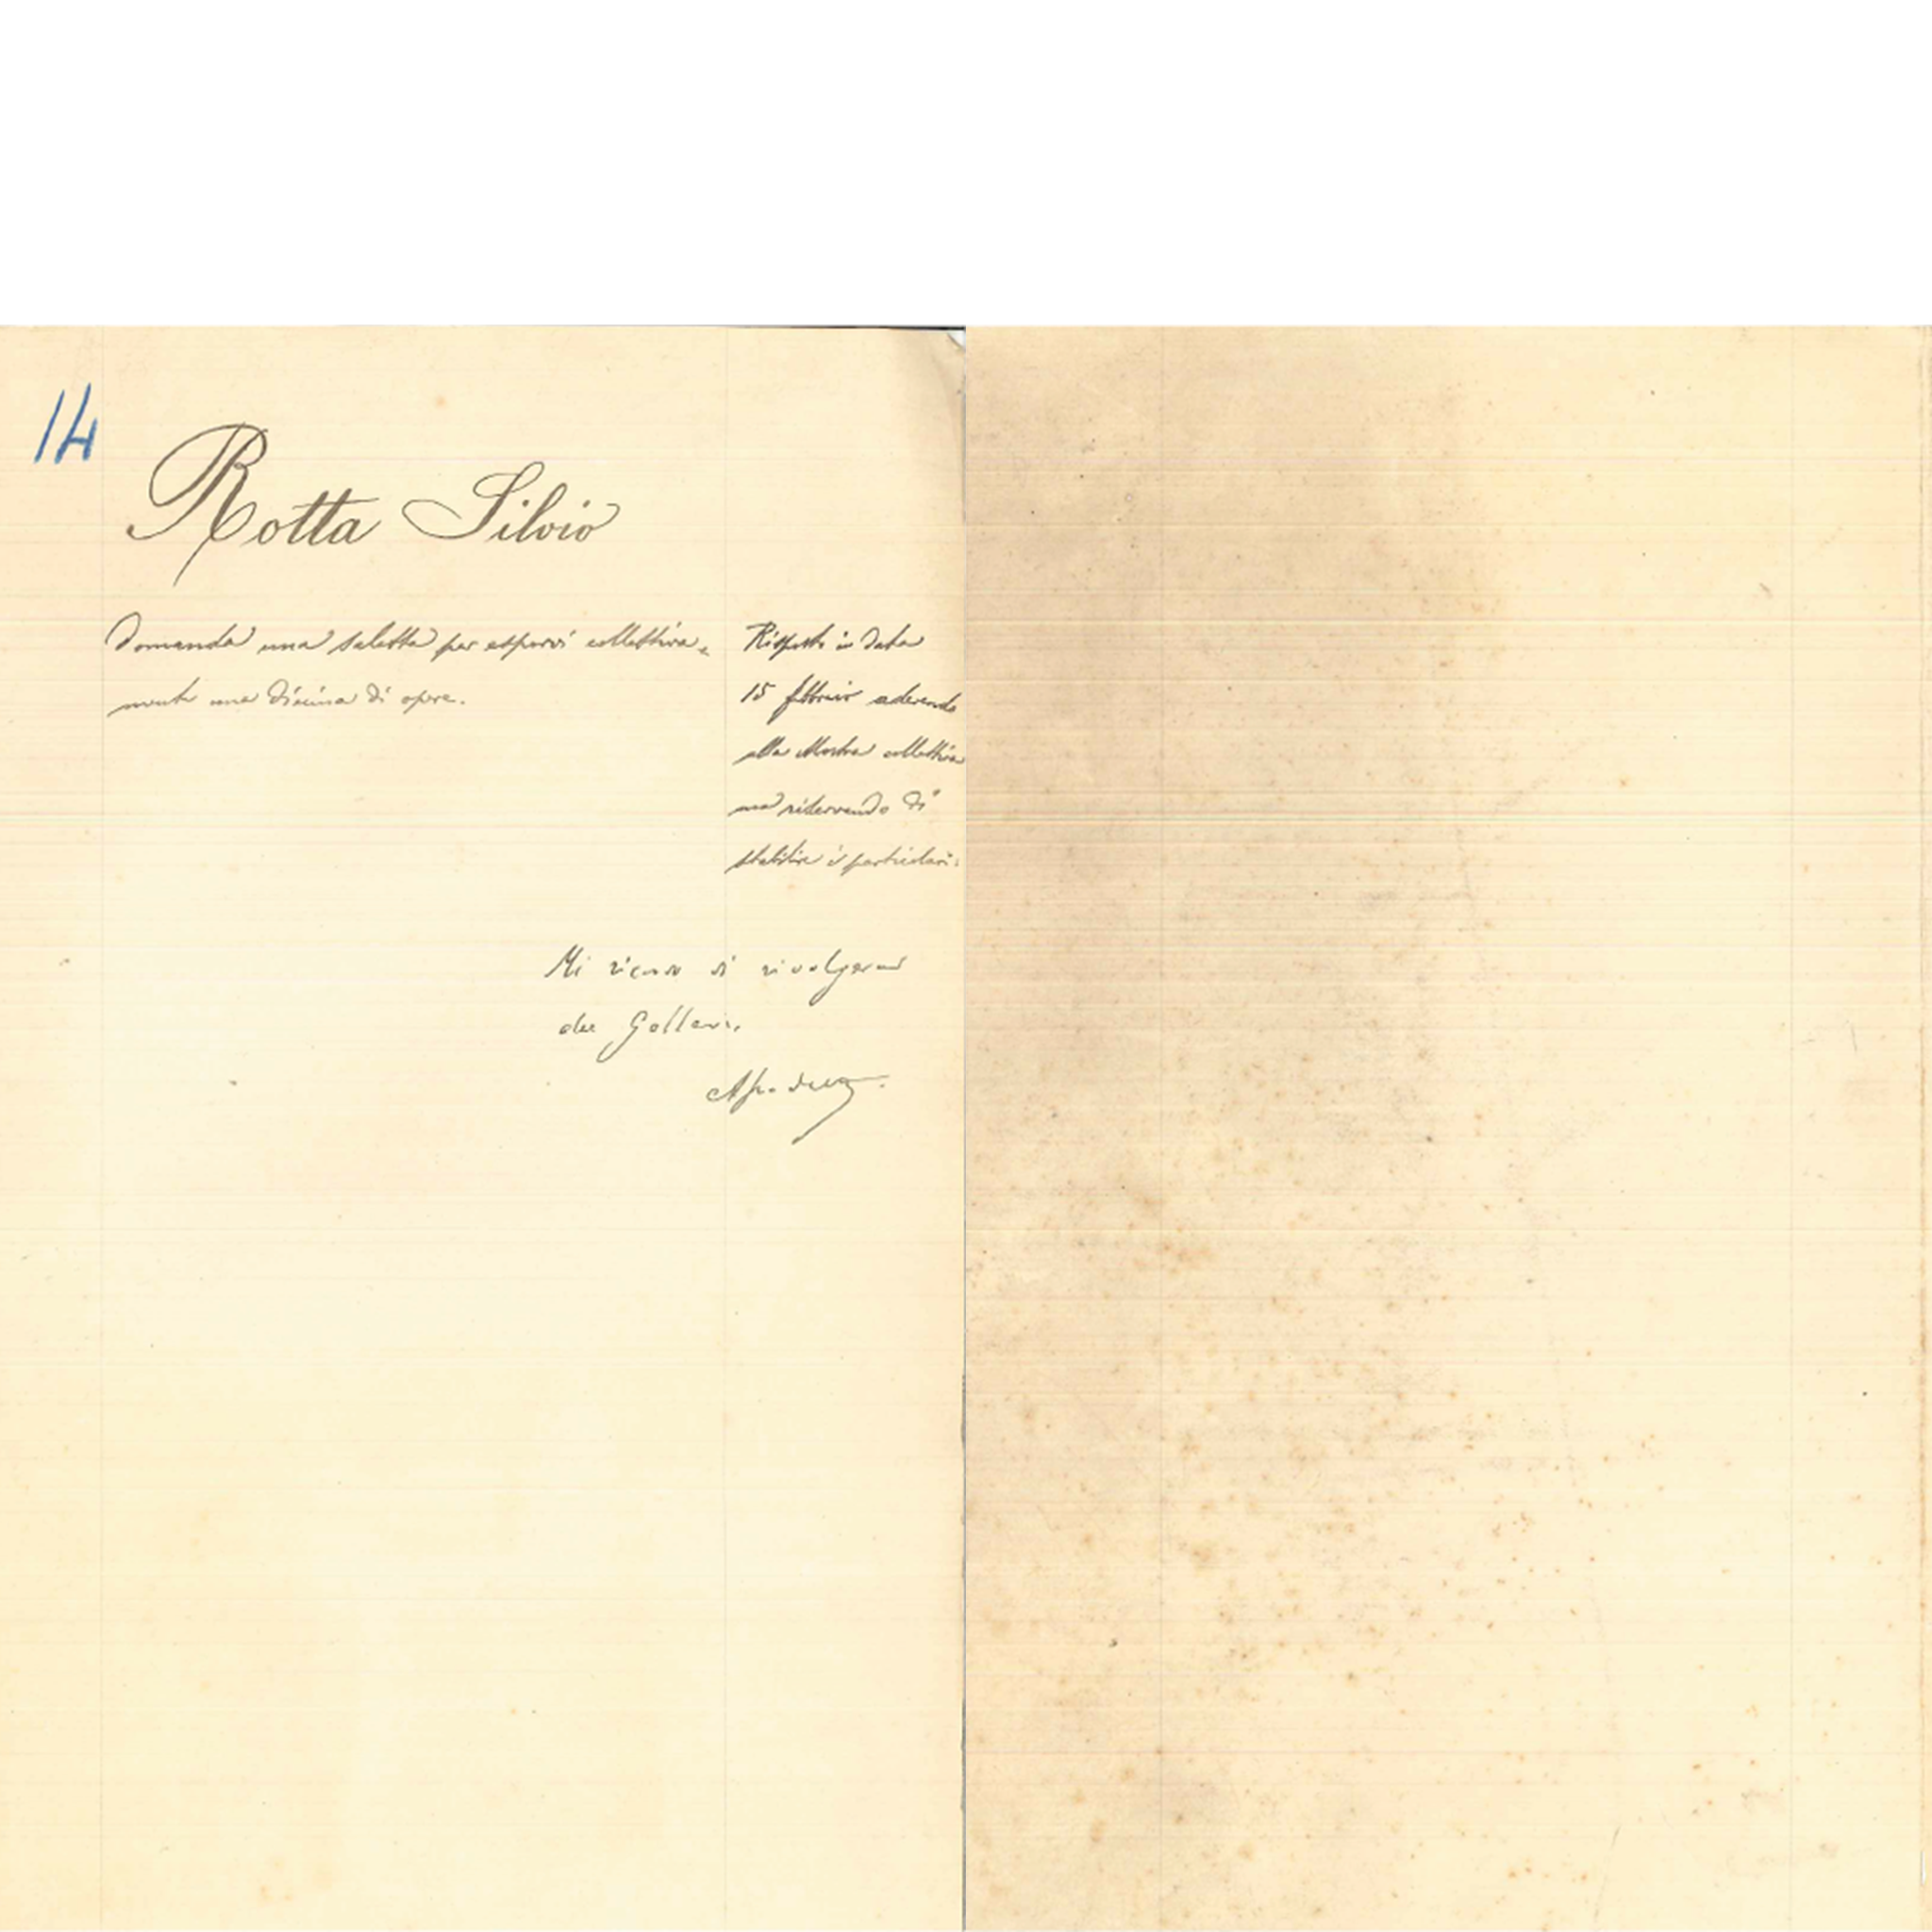 14
Rotta Silvio
Domanda una saletta per esporvi collettiva-
mente una diecina di opere.
Risposto in data
15 febbraio aderendo
alla Mostra collettiva
ma riservando di
stabilire i particolari.
Mi si rivolgerà